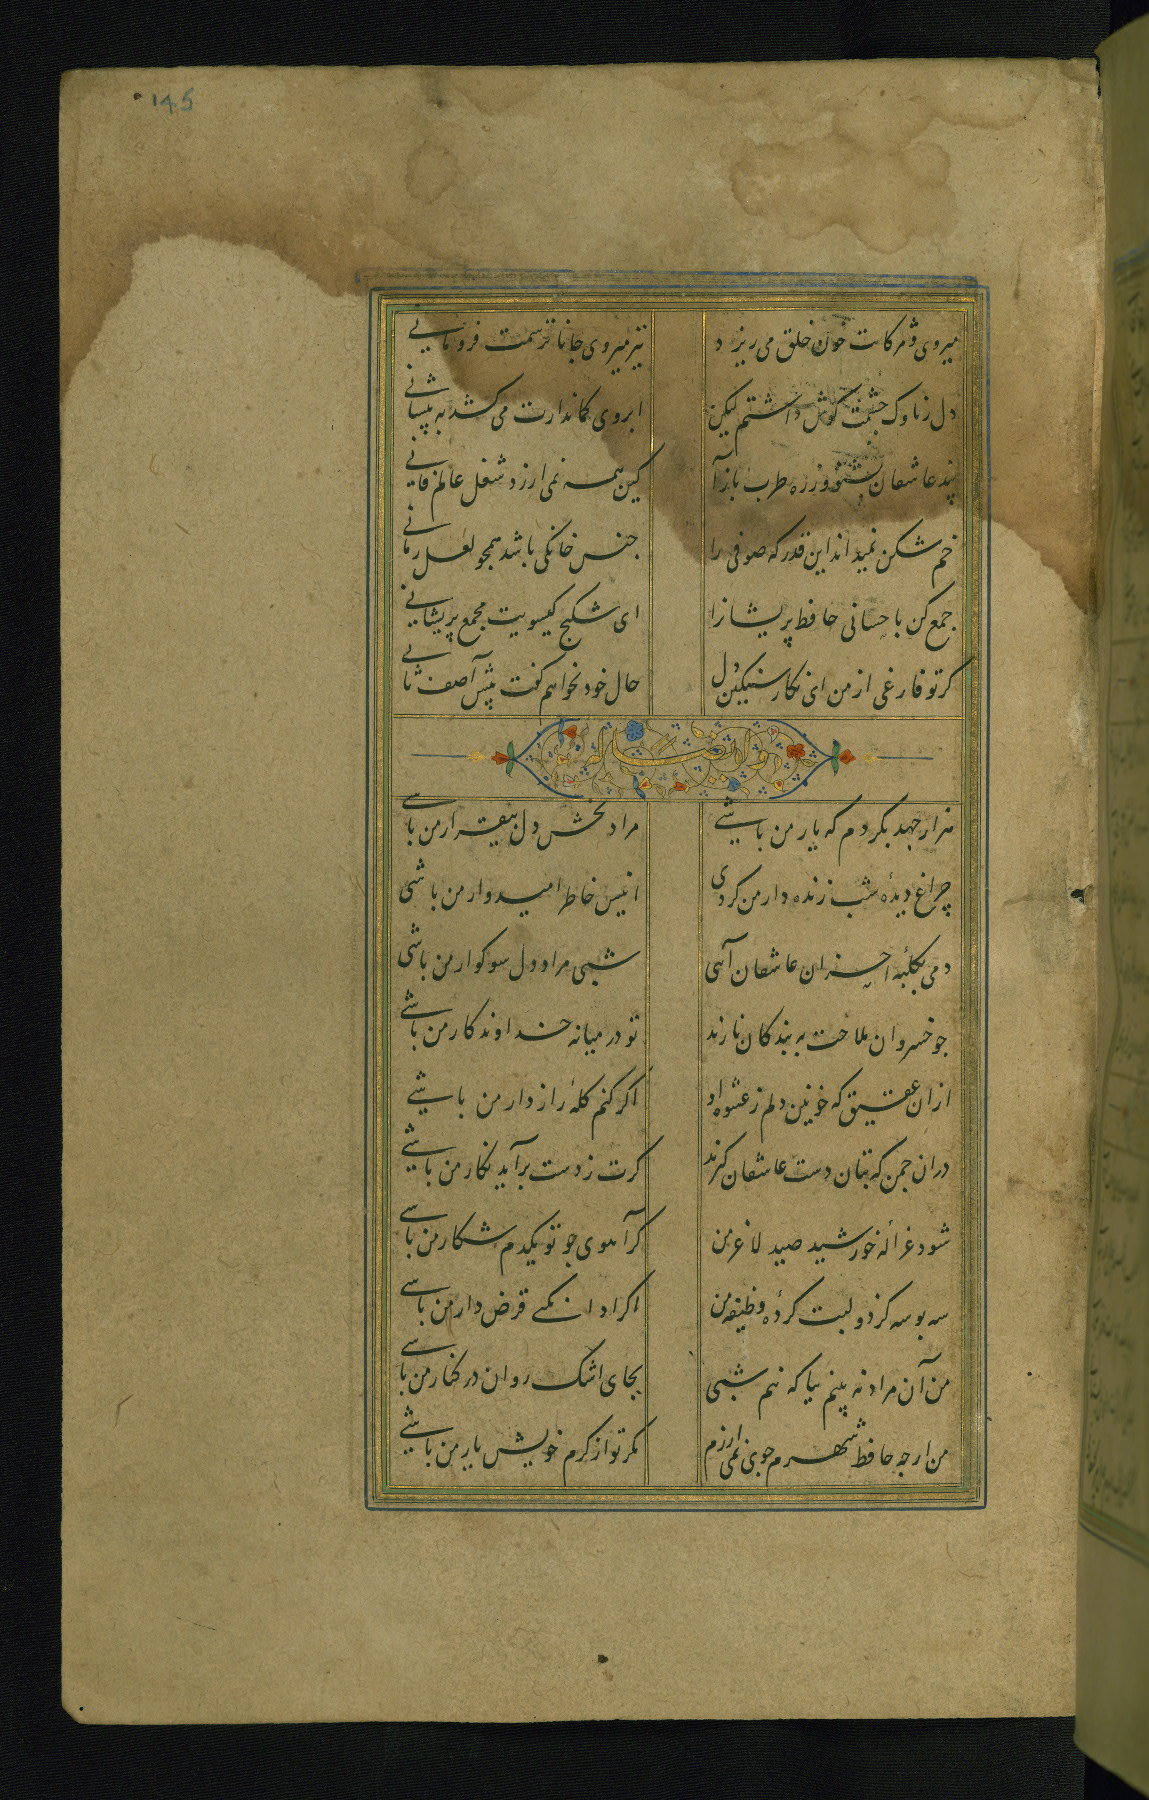 ۱۴۵
میروی و مژکانت خون خلق می ریزد
تیز میروی جانا ترسمت فرو مانی
دل ز ناوک چشمت کوش داشتم لیکن
ابروی کماندارت می کشد به پیشانی
پند عاشقان بشنو وز ره طرب باز آ
کین همه نمی ارزد شغل عالم فانی
خم شکن نمیداند این قدر که صوفی را
جنس خانکی باشد همجو لعل رمانی
جمع کن باحسانی حافظ پریشانرا
ای شکنج کیسویت مجمع پریشانی
کر تو فارغی از من ای نکار سنکین دل
حال خود نخواهم کفت پیش آصف ثانی
وله ایضا
هزار جهد بکردم که یار من باشی
مراد بخش دل بیقرار من باشی
چراغ دیدهٔ شب زنده دار من کردی
انیس خاطر امیدوار من باشی
دمی بکلبهٔ احزان عاشقان آئی
شبی مراد دل سوکوار من باشی
جو خسروان ملاحت به بندکان نازند
تو در میانه خداوندکار من باشی
ازان عقیق که خونین دلم ز عشوه او
اکر کنم کلهٔ رازدار من باشی
دران جمن که بتان دست عاشقان کیرند
کرت ز دست برآید نکار من باشی
شود غزالهٔ خورشید صید لاغر من
کر آهوی جو تو یکدم شکار من باشی
سه بوسه کز دو لبت کردهٔ وظیفه من
اکر ادا نکنی قرض دار من باشی
من آن مراد نه بینم بیا که نیم شبی
بجای اشک روان در کنار من باشی
من ارجه حافظ شهرم جوی نمی ارزم
مکر تو از کرم خویش یار من باشی